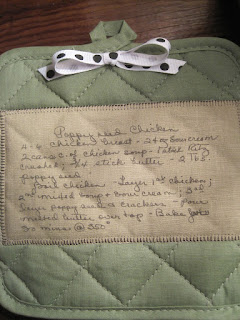 Poppy seed Chicken
4-6 chicken breast - 2 c sour cream
2 cans c. of chicken soup - Ritz
crushed; stick butter - 2 Tbs
poppy seed
Boil chicken - Layer 1st chicken;
2nd mixed soup + sour cream; 3rd
layer poppy seed + crackers - pour
melted butter over top - Bake
30 mins @ 350°